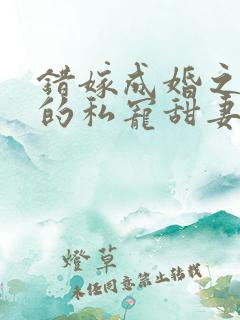 错嫁成婚之
的私宠甜妻
燈草
未任同意禁止转载